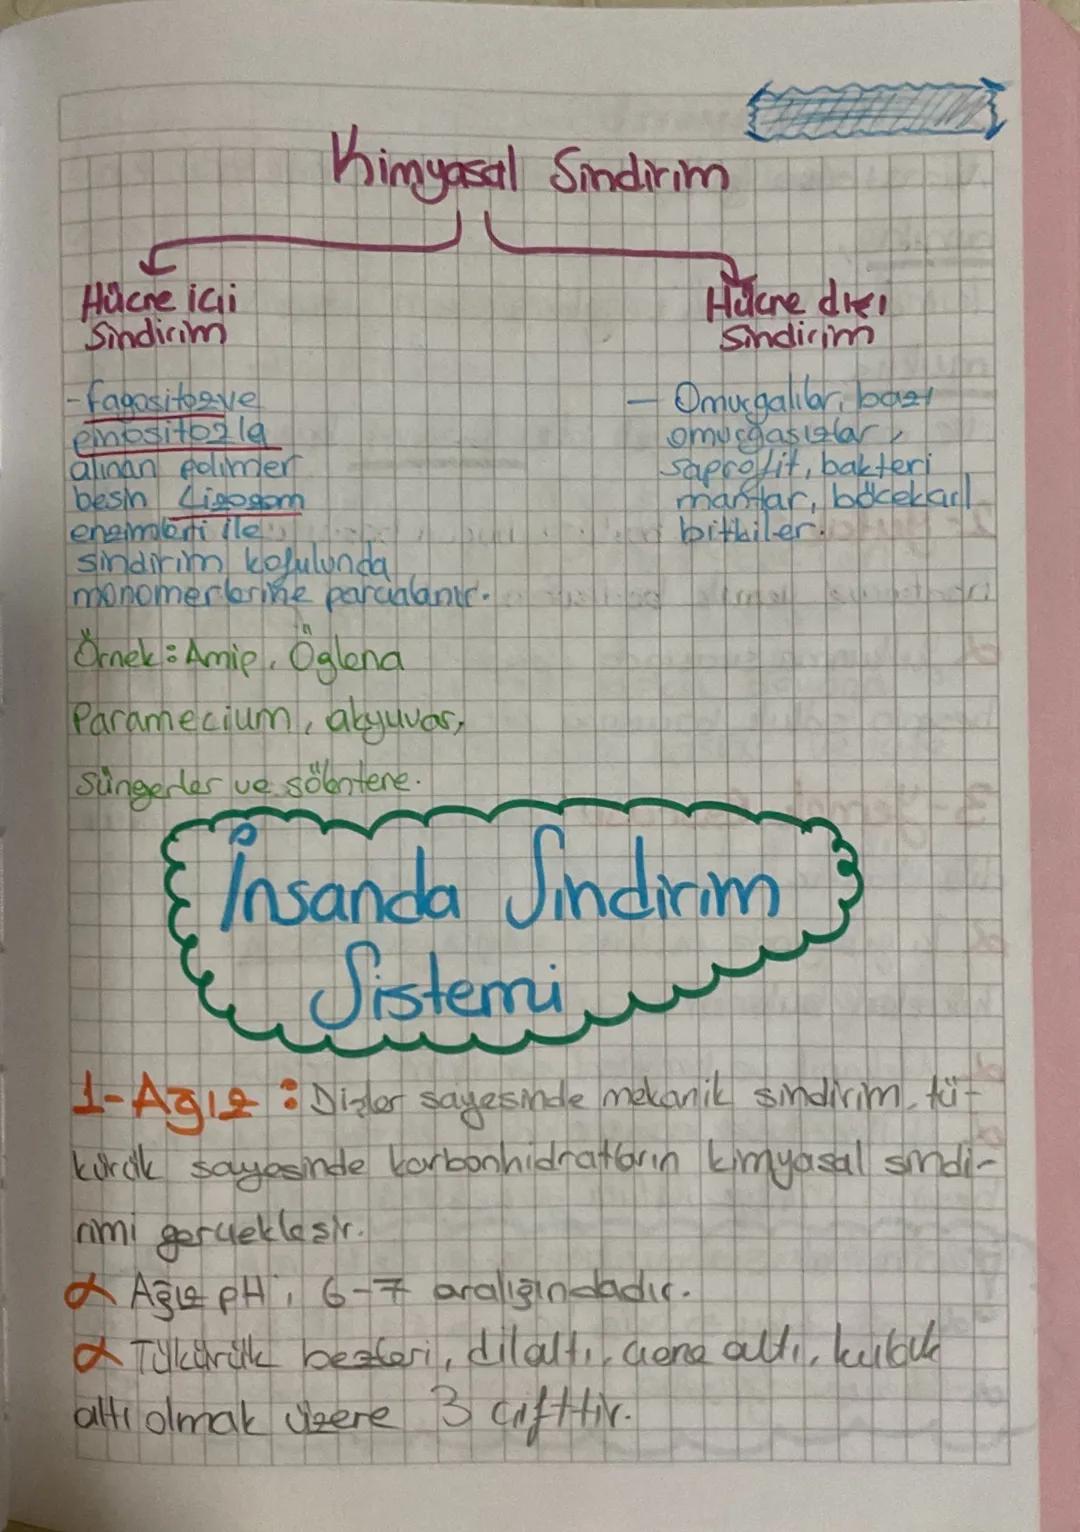 Kimyasal Sindirim
Hücre içi
Sindirim
- fagositoz ve
endositozla
alınan polimer
besin Lizozom
enzimleri ile
sindirim kofulunda
monomerlerine parçalanır.
Örnek: Amip, Öglena
Paramecium, akyuvar,
Süngerler ve sölentere.
Hücre dışı
Sindirim
- Omurgalılar, bazı
omurgasızlar,
saprofit, bakteri
mantlar, böcekçil
bitkiler.
İnsanda Sindirim
Sistemi
1-Ağız : Dişler sayesinde mekanik sindirim, tü-
kürük sayesinde karbonhidratların kimyasal sindi-
rimi gerçekleşir.
α Ağız pH'ı 6-7 aralığındadır.
α Tükürük bezleri, dilaltı, çene altı, kulak
altı olmak üzere 3 çifttir.